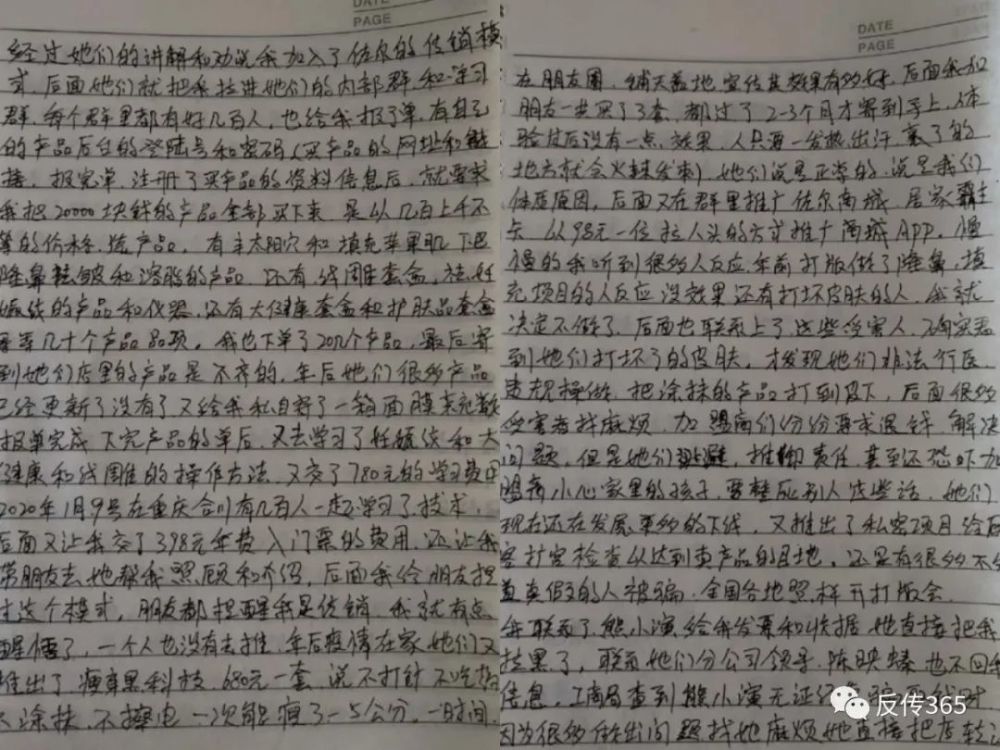 DATE
PAGE
经过她们的讲解和劝说我加入了佐尔的传销模
式，后面她们就把我拉进她们的内部群和学习
群，每个群里都有好几百人，也给我报了单，有自己
的产品后台的登陆号和密码（买产品的网址和链
接，报完单，注册了买产品的资料信息后，就要求
我把20000块钱的产品全部买下来，是以几百上千不
等的价格，产品，有丰太阳穴和填充苹果肌下巴
隆鼻祛皱和溶脂的产品，还有线雕套盒，祛妊
娠纹的产品和仪器，还有大健康套盒和护肤品套盒
等等几十个产品品项，我也下单了20几个产品，最后寄
到她们店里的产品是不齐的，年后她们很多产品
已经更新了没有了又给我私自寄了一箱面膜来充数
报单完成下完产品的单后，又去学习了妊娠纹和大
健康和线雕的操作方法，又交了780元的学习费用
2020年1月9号在重庆合川有几百人一起学习了技术，
后面又让我交了398元年费入门票的费用，还让我
带朋友去她帮我照顾和介绍，后面我给朋友提
过这个模式，朋友都提醒我是传销，我就有点
醒懂了，一个人也没有去推，年后疫情在家她们又
推出了瘦身黑科技，680元一套，说不打针不吃药
不涂抹，不擦电一次能瘦了-5公分，一时间，
DATE
PAGE
在朋友圈，铺天盖地宣传其效果有多好，后面我和
朋友一共买了3套，都过了2-3个月才寄到手上，体
验过后没有一点效果，人只要一发热出汗，裹了的
地方就会火辣发刺，她们说是正常的，说是我们
体质原因，后面又在群里推广佐尔商城，居家霸主
头以98元一位拉人头的方式推广商城APP，慢
慢的我听到很多人反应，年前打版做了隆鼻，填
充项目的人反应没效果还有打坏皮肤的人，我就
决定不做了，后面也联系上了这些受害人，确实看
到她们打坏了的皮肤，才发现她们非法行医
违规操作，把涂抹的产品打到皮下，后面很多
受害者找麻烦，加盟商们纷纷要求退钱，解决
问题，但是她们逃避，推卸责任，甚至还恐吓加
盟商小心家里的孩子，要整死别人这些话，她们
现在还在发展更多的下线，又推出了私密项目给顾
客扩宫检查以达到卖产品的目地，还是有很多不分
真假的人被骗，全国各地照样开打版会，
联系了熊小演给我发票和收据，她直接把我
拉黑了，联系她们分公司领导，陈映臻也不回我
信息，工商局查到熊小演无证经
因为很多件出问题找她麻烦她直接把店转
反传365